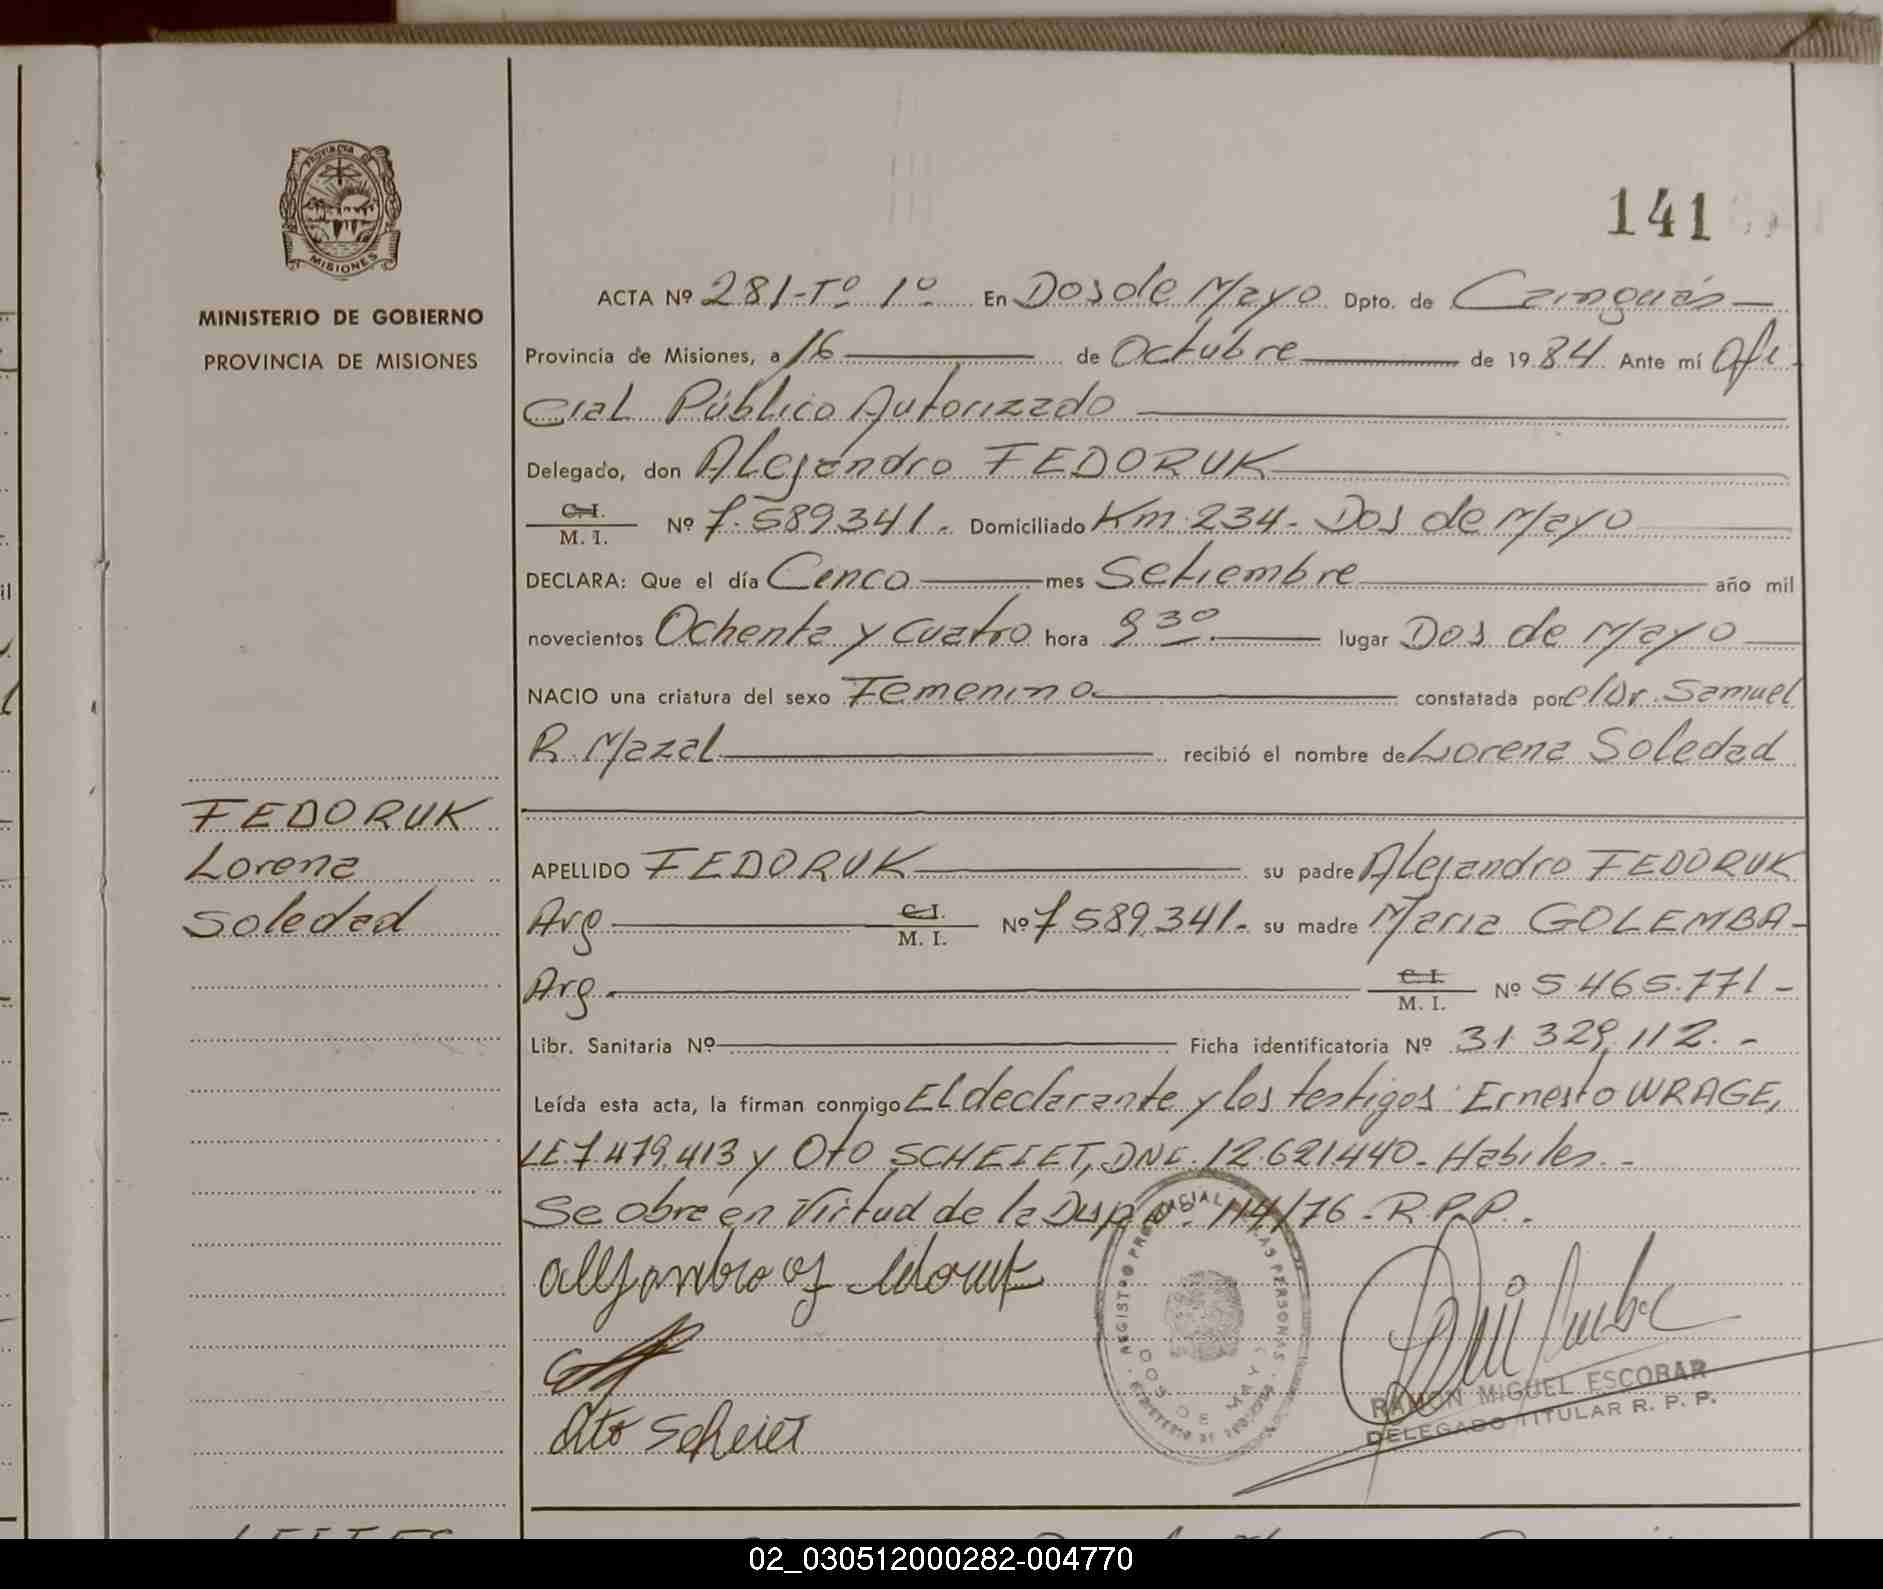 141
PROVINCIA DE
MISIONES
MINISTERIO DE GOBIERNO
PROVINCIA DE MISIONES
FEDORUK
Lorena
Soledad
ACTA Nº 281-Tº 1º En Dos de Mayo Dpto. de Cainguás
Provincia de Misiones, a 16 de Octubre de 1984 Ante mí Ofi-
cial Público Autorizado
Delegado, don Alejandro FEDORUK
C. I.
M. I. Nº 7.589.341.- Domiciliado Km 234- Dos de Mayo
DECLARA: Que el día Cinco mes Setiembre año mil
novecientos Ochenta y cuatro hora 9 30 lugar Dos de Mayo
NACIO una criatura del sexo Femenino constatada por el Dr. Samuel
R. Mazal recibió el nombre de Lorena Soledad
APELLIDO FEDORUK su padre Alejandro FEDORUK
Arg C. I. M. I. Nº 7.589.341.- su madre Maria GOLEMBA-
Arg. C. I. M. I. Nº 5.465.771-
Libr. Sanitaria Nº Ficha identificatoria Nº 31.329.112.-
Leída esta acta, la firman conmigo El declarante y los testigos: Ernesto WRAGE,
LE.7.479.413 y Oto SCHEIET, DNI. 12.621.440- Habiles.-
Se obra en Virtud de la 114/76- R.P.P.
REGISTRO PROVINCIAL DE LAS PERSONAS
DOS DE MAYO
Oto Scheiet
RAMON MIGUEL ESCOBAR
DELEGADO TITULAR R. P. P.
02_030512000282-004770